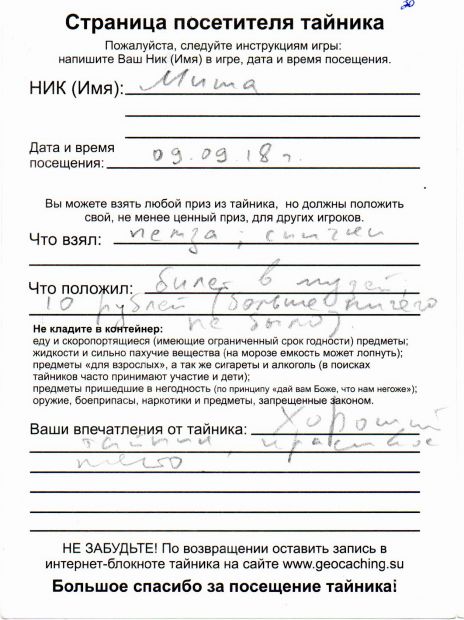 30
Страница посетителя тайника
Пожалуйста, следуйте инструкциям игры:
напишите Ваш Ник (Имя) в игре, дата и время посещения.
НИК (Имя): Миша
Дата и время
посещения: 09.09.18 г.
Вы можете взять любой приз из тайника, но должны положить
свой, не менее ценный приз, для других игроков.
Что взял: пемза, спички
Что положил: билет в музей,
10 рублей (больше ничего
не было).
Не кладите в контейнер:
еду и скоропортящиеся (имеющие ограниченный срок годности) предметы;
жидкости и сильно пахучие вещества (на морозе емкость может лопнуть);
предметы «для взрослых», а так же сигареты и алкоголь (в поисках
тайников часто принимают участие и дети);
предметы пришедшие в негодность (по принципу «дай вам Боже, что нам негоже»);
оружие, боеприпасы, наркотики и предметы, запрещенные законом.
Ваши впечатления от тайника: Хороший
тайник, красивое
место
НЕ ЗАБУДЬТЕ! По возвращении оставить запись в
интернет-блокноте тайника на сайте www.geocaching.su
Большое спасибо за посещение тайника!